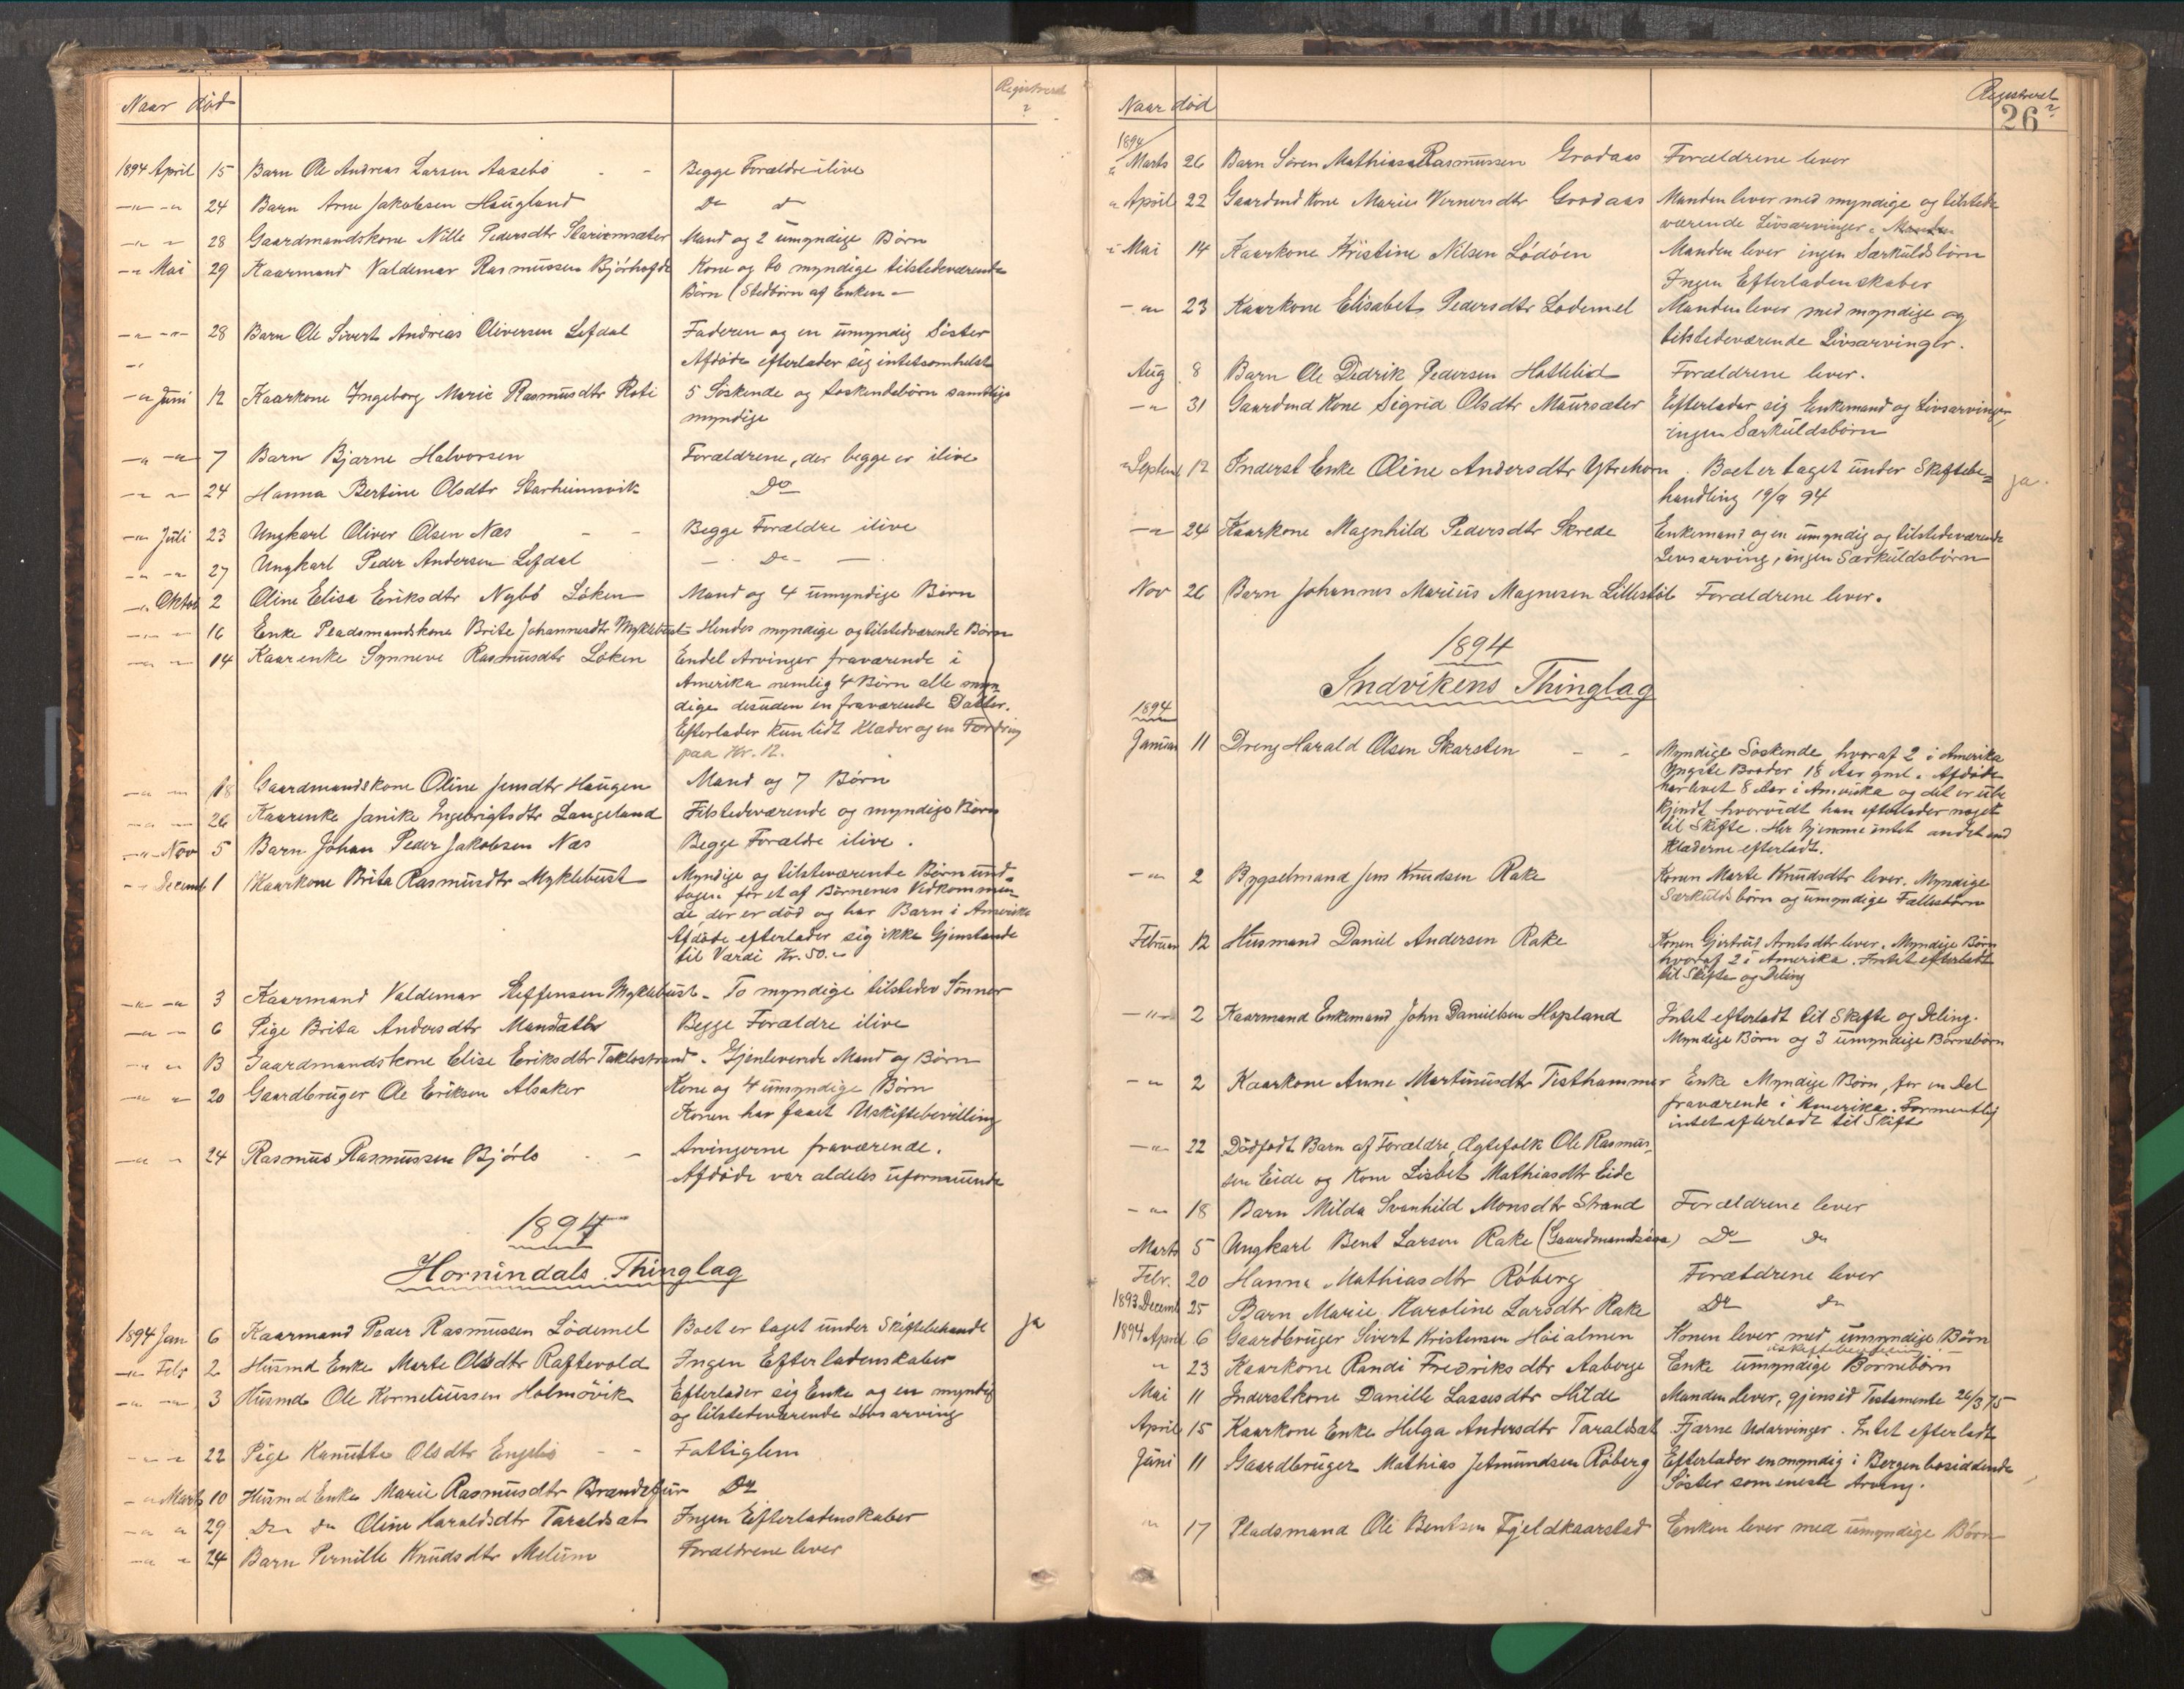 Naar død
Registrerd
?
1894 April 15 Barn Ole Andreas Larsen Aasebø - - Begge Forældre ilive
-"- -" 24 Barn Arne Jakobsen Haugland Do d
-" " 28 Gaardmandskone Nille Pedersdtr Mand og 2 umyndige Børn
-" Mai 29 Kaarmand Valdemar Rasmussen Kone og to myndige tilstedeværende
Børn (Stedbørn af Enken -
-"- -"- 28 Barn Ole Sivert Andreas Oliversen Lefdal Faderen og en umyndig Søster
Afdøde efterlader sig intetsomhelst
-" Juni 12 Kaarkone Ingeborg Marie Rasmusdtr Roti 5 Søskende og søskendebørn samtlige
myndige
-" -" 7 Barn Bjarne Halvorsen Forældrene, der begge er ilive
-" -" 24 Hanna Bertine Olsdtr Starheimsvik Do
-" Juli 23 Ungkarl Oliver Olsen Næs - - Begge Forældre ilive
-" -" 27 Ungkarl Peder Andersen Lefdal - Do - -
-" Oktob 2 Oline Elisa Eriksdtr Nybø Løken Mand og 4 umyndige Børn
-"- " 16 Enke Pladsmandskone Brite Johannesdtr Myklebust Hendes myndige og tilstedværende Børn
-" -" 14 Kaarenke Synneve Rasmusdtr Løken Endel Arvinger fraværende i
Amerika nemlig 4 Børn alle myn-
dige desuden en fraværende Datter.
Efterlader kun lidt Klæder og en Fordring
paa Kr. 12.
-" -" 18 Gaardmandskone Oline Jensdtr Haugen Mand og 7 Børn
-" -" 26 Kaarenke Janike Ingebrigtsdtr Langeland Tilstedeværende og myndige Børn
-" Nov 5 Barn Johan Peder Jakobsen Næs Begge Forældre ilive.
-" Decemb 1 Kaarkone Brita Rasmusdtr Myklebust Myndige og tilsteværente Børn und-
tagen for et af Børnenes Vedkommen
de, der er død og har Barn i Amerika
Afdøde efterlader sig ikke Gjenstande
til Værdi Kr. 50.-
-" -" 3 Kaarmand Valdemar Steffensen Myklebust - To myndige tilstedev Sønner
-" " 6 Pige Brita Andersdtr Begge Forældre ilive
-" " 13 Gaardmandskone Elise Eriksdtr Taklostrand - Gjenlevende Mand og Børn
-" " 20 Gaardbruger Ole Eriksen Alsaker Kone og 4 umyndige Børn
Konen har faaet Uskiftebevilling
-" " 24 Rasmus Rasmussen Bjørlo - - Arvingerne fraværende.
Afdøde var aldeles uformuende
1894
Hornindals Thinglag
1894 Jan 6 Kaarmand Peder Rasmussen Lødemel Boet er taget under Skiftebehandl ja
-" Febr 2 Husmd Enke Marte Olsdtr Raftevold Ingen Efterladenskaber
-" -" 3 Husmd Ole Korneliussen Holmøvik Efterlader sig Enke og en myndig
og tilstedeværende Livsarving
-" " 22 Pige Kanutte Olsdtr - - Fattiglem
-" Marts 10 Husmd Enke Marie Rasmusdtr Do
-" " 29 Do Do Oline Haraldsdtr Taraldsæt Ingen Efterladenskaber
-" " 24 Barn Pernille Knudsdtr Melum Forældrene lever
Naar død
Registrerd
?
26
1894
" Marts 26 Barn Søren Mathias Rasmussen Grodaas Forældrene lever
" April 22 Gaardmd Kone Maries Vernersdtr Grodaas Manden lever med myndige og tilstede
værende Livsarvinger.
" Mai 14 Kaarkone Kristine Nilsen Lødøen Manden lever ingen Særkuldsbørn
Ingen Efterladenskaber
- " 23 Kaarkone Elisabet Pedersdtr Lødemel Manden lever med myndige og
tilstedeværende Livsarvinger.
Aug 8 Barn Ole Didrik Pedersen Hattelid Forældrene lever.
- " 31 Gaardmd Kone Sigrid Olsdtr Maursæter Efterlader sig Enkemand og Livsarvinger,
ingen Særkuldsbørn
" Septemb 12 Inderst Enke Oline Andersdtr Ytrehorn. Boet er taget under Skiftebe-
handling 19/9 94 ja.
- " 24 Kaarkone Magnhild Pedersdtr Skrede Enkemand og en umyndig og tilstedeværende
Livsarving, ingen Særkuldsbørn
Nov 26 Barn Johannes Marius Magnusen Lillestøl Forældrene lever.
1894
Indvikens Thinglag
1894
Januar 11 Dreng Harald Olsen Skarsten - - Myndige Søskende hvoraf 2 i Amerika
Yngste Broder 18 Aar gml. Afdøde
har levet 8 Aar i Amerika og det er ube
kjendt hvorvidt han efterlader noget
til Skifte. Her hjemme intet andet end
Klæderne efterladt.
- " 2 Bygselmand Jens Knudsen Rake Konen Marte Knudsdtr lever. Myndige
Særkuldsbørn og umyndige Fællesbørn
Februar 12 Husmand Daniel Andersen Rake Konen Gjertrud Arntsdtr lever. Myndige Børn
hvoraf 2 i Amerika. Intet efterladt
til Skifte og Deling
- " 2 Kaarmand Enkemand John Danielsen Hopland Intet efterladt til Skifte og Deling.
Myndige Børn og 3 umyndige Børnebørn
- " 2 Kaarkone Anne Martinusdtr Tisthammer Enke Myndige Børn, for en Del
fraværende i Amerika. Formentlig
intet efterladt til Skifte
- " 22 Dødfødt Barn af Forældre, Ægtefolk Ole Rasmus-
sen Eide og Kone Lisbet Mathiasdtr Eide
- " 18 Barn Milda Svanhild Monsdtr Strand Forældrene lever
Marts 5 Ungkarl Bent Larsen Rake (Gaardmandssøn) Do Do
Febr. 20 Hanna Mathiasdtr Røberg Forældrene lever
1893 Decemb 25 Barn Marie Karoline Larsdtr Rake Do Do
1894 April 6 Gaardbruger Sivert Kristensen Høialmen Konen lever med umyndige Børn
" 23 Kaarkone Randi Fredriksdtr Aaberge Enke umyndige Børnebørn
Mai 11 Inderstkone Danille Lassesdtr Hilde Manden lever, gjensid Testamente 26/3 75
April 15 Kaarkone Enke Helga Andersdtr Taraldsæt Fjærne Udarvinger. Intet efterladt
Juni 11 Gaardbruger Mathias Jetmundsen Røberg Efterlader en myndig i Bergen bosiddende
Søster som eneste Arving.
" 17 Pladsmand Ole Bentsen Fjeldkaarstad Enken lever med umyndige Børn